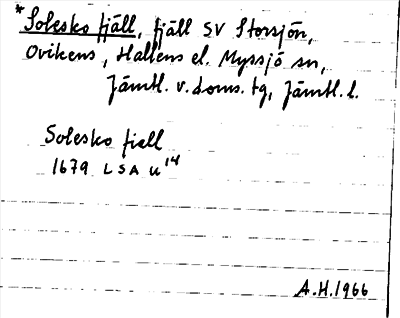 * Solesko fjäll, fjäll SV Storsjön,
Ovikens, Hallens el. Myssjö sn,
Jämtl. v. doms. tg, Jämtl. l.
Solesko fiell
1679 LSA u¹⁴
A.H. 1966